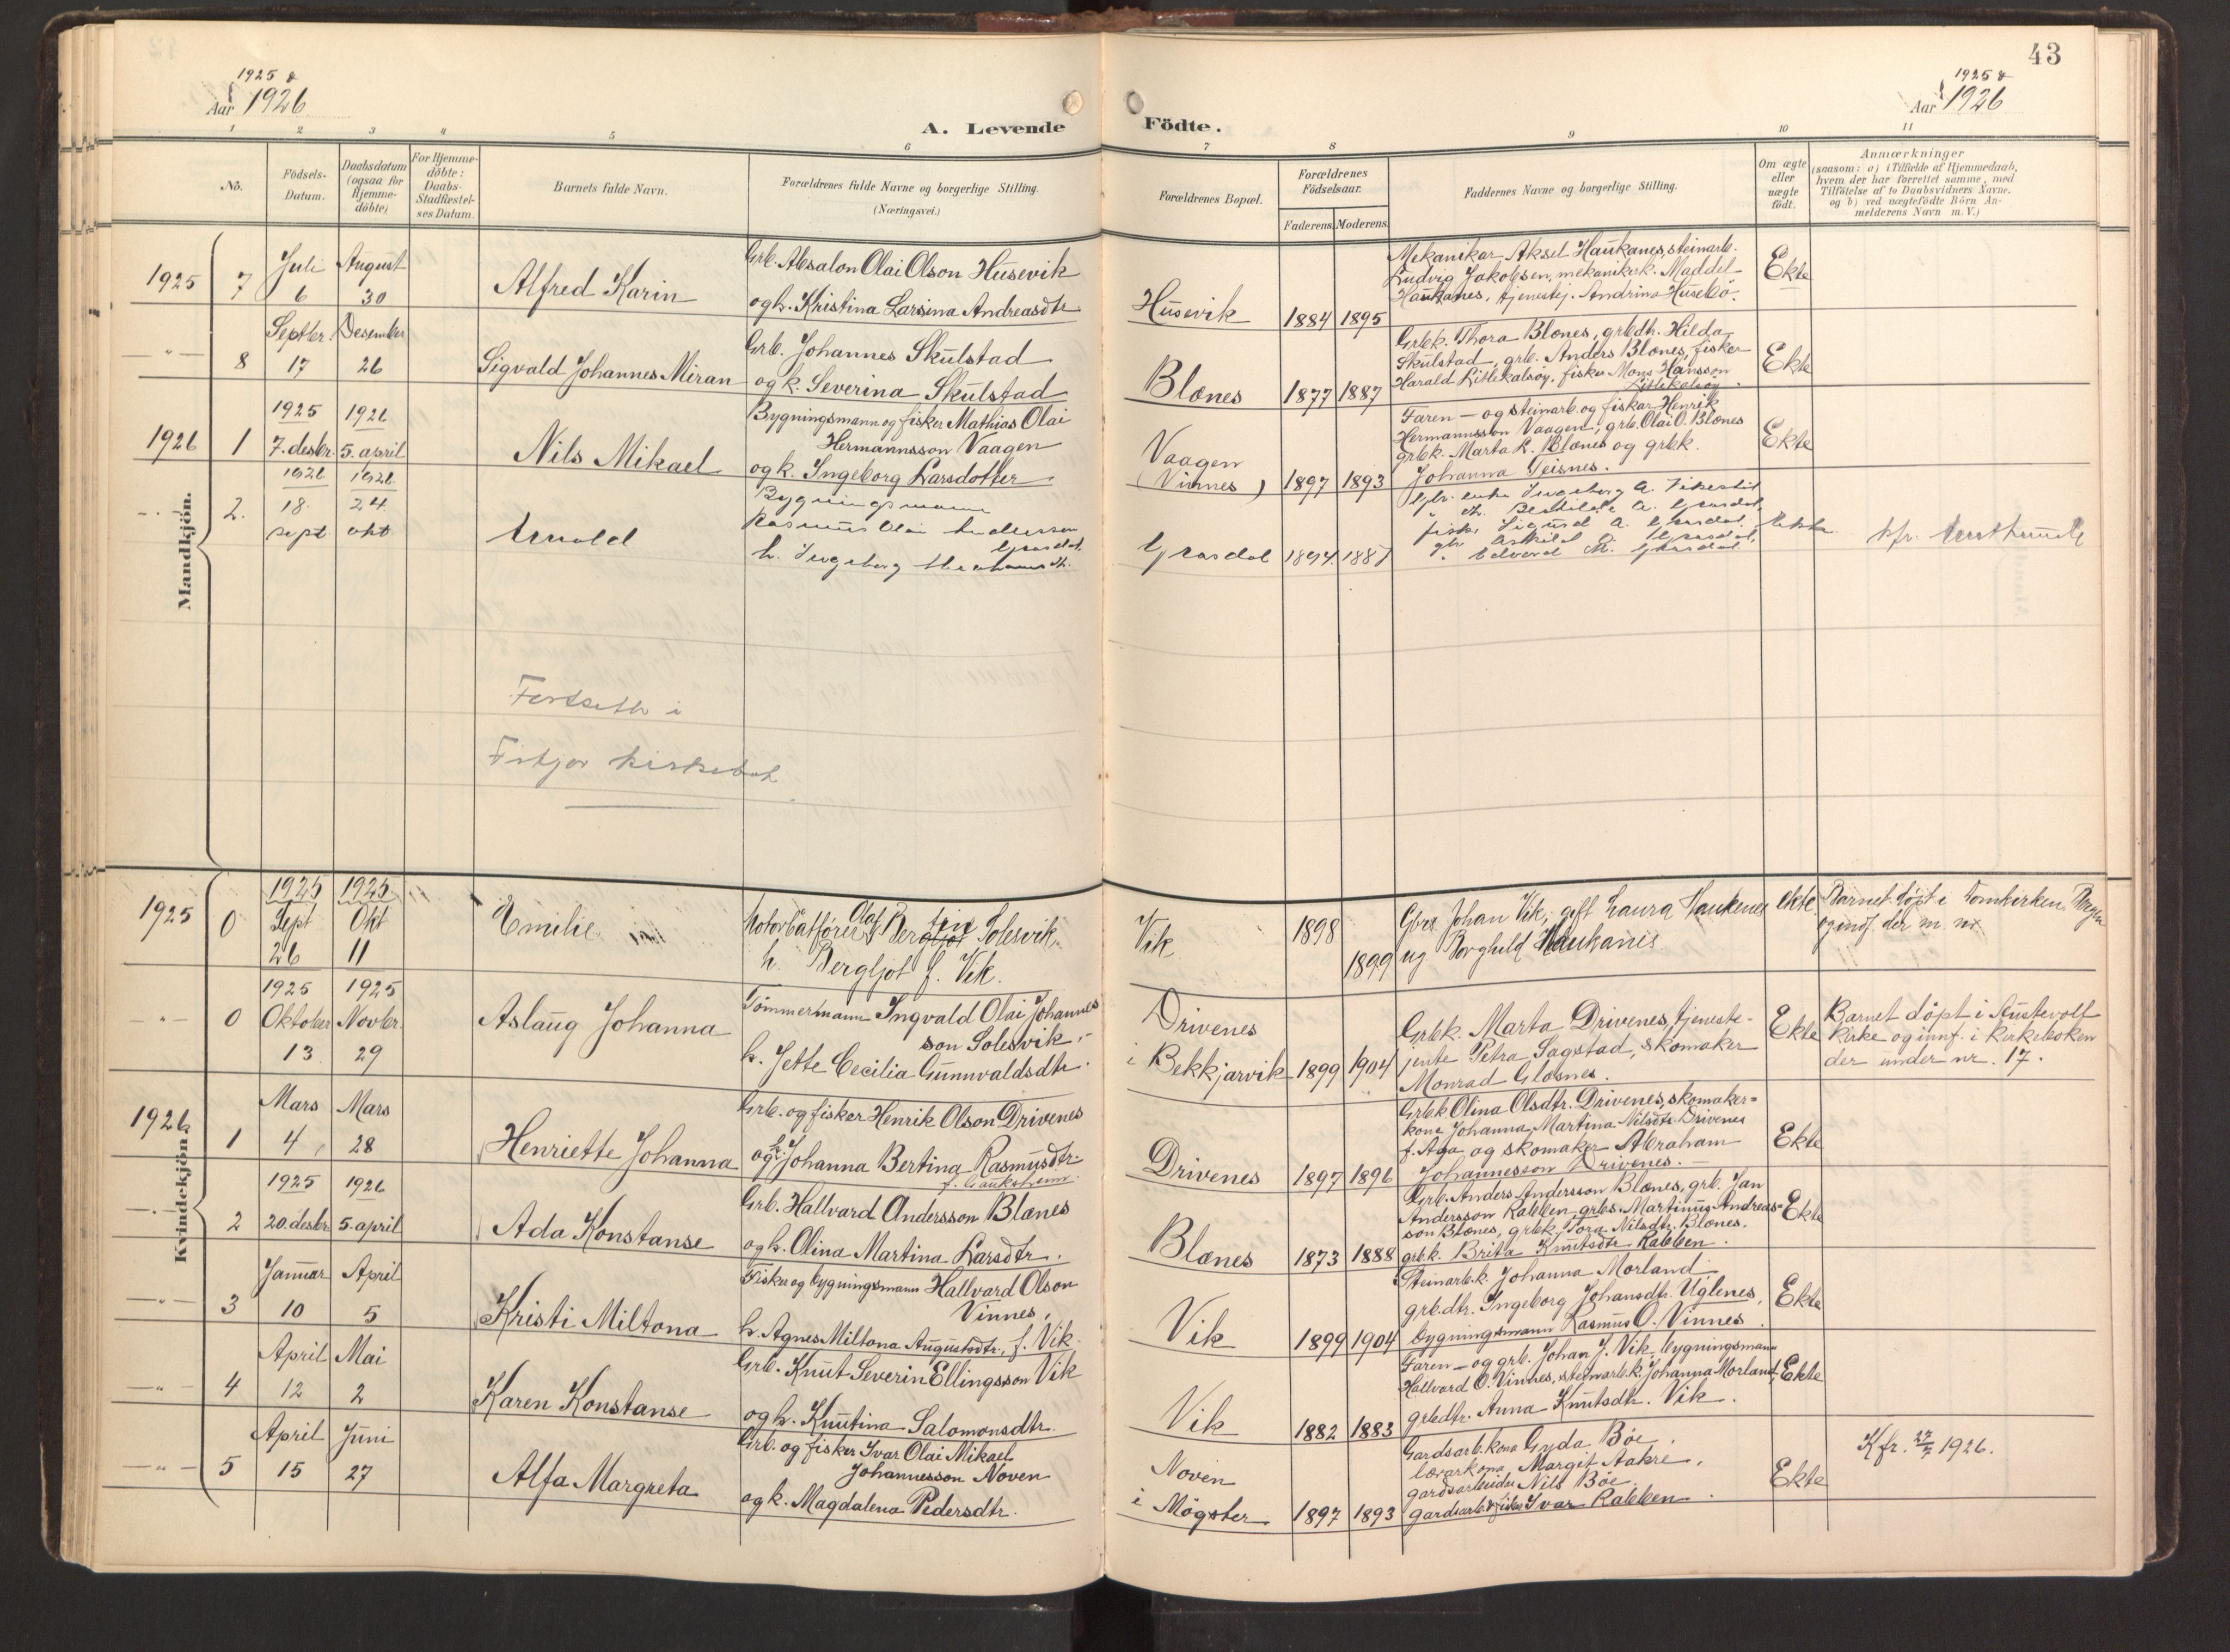 1925 &
Aar 1926
A. Levende Födte.
43
1925 &
Aar 1926
1 2 3 4 5 6 7 8 9 10 11
No.
Födsels-
Datum.
Daabsdatum
(ogsaa for
Hjemme-
döbte)
For Hjemme-
döbte:
Daabs-
Stadfæstel-
ses Datum.
Barnets fulde Navn.
Forældrenes fulde Navne og borgerlige Stilling.
(Næringsvei.)
Forældrenes Bopæl.
Forældrenes
Födselsaar.
Faderens. Moderens.
Faddernes Navne og borgerlige Stilling.
Om ægte
eller
uægte
födt.
Anmærkninger
(saasom: a) i Tilfælde af Hjemmedaab,
hvem der har forrettet samme, med
Tilföielse af to Daabsvidners Navne.
og b) ved uægtefödte Börn An-
melderens Navn m. V.)
Mandkjön.
1925 7
Juli
6
August
30
Alfred Karin
Grb. Absalon Olai Olson Husevik
og h. Kristina Larsina Andreasdtr
Husevik
1884 1895
Mekanikar Aksel Haukanes, steinarb.
Ludvig Jakobsen, mekanikerk. Maddel
Haukanes, tjenestej. Andrina Husebö.
Ekte
-"- 8
Septbr.
17
Desember
26
Sigvald Johannes Miran
Grb. Johannes Skulstad
og k. Severina Skulstad
Blænes
1877 1887
Grbk. Thora Blænes, grbdtr. Hilda
Skulstad, grb. Anders Blænes, fisker
Harald Litlekalsöy, fisker Mons Hansson
Litlekalsöy.
Ekte
1926 1
1925
7. desbr.
1926
5. april
Nils Mikael
Bygningsmann og fisker Mathias Olai
Hermannsson Vaagen
og k. Ingeborg Larsdotter
Vaagen
(Vinnes)
1897 1893
Faren – og steinarb. og fiskar Henrik
Hermannsson Vaagen, grb. Olai O. Blænes
grbk. Marta L. Blænes og grbk.
Johanna Teisnes.
Ekte
-"- 2.
1926
18.
sept
1926
24
okt
Arnold
Bygningsmann
Rasmus Olai Andersen
Grasdal
h. Ingeborg
Grasdal
1894 1887
Gbr. enke Ingeborg A.
fisk. Sigurd A. Grasdal
Grasdal
Edvard M. Grasdal
Ekte
kfr.
Fortsett i
Fitjar kirkebok
Kvindekjön.
1925 0
1925
Sept
26
1925
Okt
11
Emilie
Motorbatförer Olaf Bergtin Solesvik
h. Bergljot f. Vik
Vik
1898
1899
Gbr. Johan Vik, gift Laura Haukenes
ug Borghild Haukanes
ekte
Barnet döpt i Domkirken, Bergen
og innf. der m. nr
-"- 0
1925
Oktober
13
1925
Novbr.
29
Aslaug Johanna
Tömmermann Ingvald Olai Johannes
son Solesvik
h. Jette Cecilia Gunnvaldsdtr.
Drivenes
i Bekkjarvik
1899 1904
Grbk. Marta Drivenes, tjeneste-
jente Petra Sagstad, skomaker
Monrad Glæsnes.
Ekte
Barnet döpt i Austevoll
kirke og innf. i kirkeboken
der under nr. 17.
1926 1
Mars
4
Mars
28
Henriette Johanna
Grb. og fisker Henrik Olson Drivenes
og h. Johanna Bertina Rasmusdtr.
f. Gauksheim
Drivenes
1897 1896
Grbk Olina Olsdtr. Drivenes, skomaker-
kone Johanna Martina Nilsdtr. Drivenes
f. Aga og skomaker Abraham
Johannesson Drivenes.
Ekte
-"- 2
1925
20. desbr.
1926
5. april
Ada Konstanse
Grb. Hallvard Andersson Blænes
og h. Olina Martina Larsdtr.
Blænes
1873 1888
Grb. Anders Andersson Blænes, grb. Jan
Andersson Rabben, grbs. Martinus Andreas-
son Blænes, grbk. Tora Nilsdtr. Blænes.
grbk. Brita Knutsdtr Rabben.
Ekte
-"- 3
Januar
10
April
5
Kristi Miltona
Fisker og bygningsmann Hallvard Olson
Vinnes,
h. Agnes Miltona Augustsdtr., f. Vik.
Vik
1899 1904
Steinarb.k. Johanna Morland
grb.dtr. Ingeborg Johansdtr. Uglenes,
bygningsmann Rasmus O. Vinnes.
Ekte
-"- 4
April
12
Mai
2
Karen Konstanse
Grb. Knut Severin Ellingsson Vik
og h. Knutina Salomonsdtr.
Vik
1882 1883
Faren – og grb. Johan J. Vik, bygningsmann
Hallvard O. Vinnes, steinarb.k. Johanna Morland,
grbdtr. Anna Knutsdtr. Vik.
Ekte
-"- 5
April
15
Juni
27
Alfa Margreta
Grb. og fisker Ivar Olai Mikael
Johannesson Noven
og k. Magdalena Pedersdtr.
Noven
i Mögster
1897 1893
Gardsarb.kona Gyda Böe,
lærarkona Margit Aakre,
gardsarbeider Nils Böe,
gardsarb. & fisker Ivar Rabben.
Ekte
Kfr. 27/7 1926.